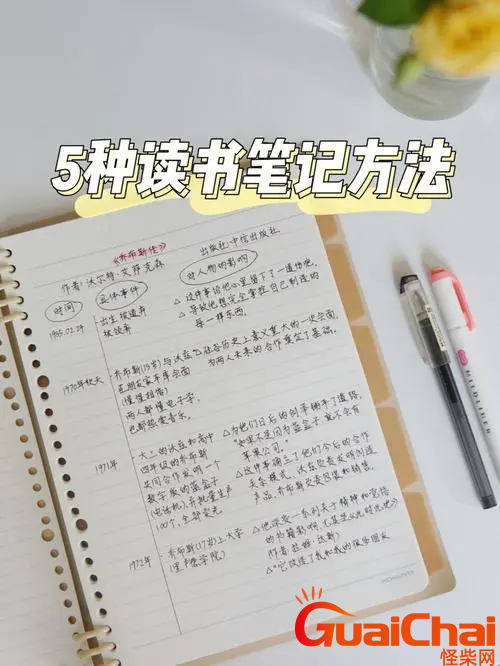 5种读书笔记方法
《乔布斯传》
出版社:中信出版社
作者:沃尔特·艾萨克森
时间
具体事件
对人物的影响
1955.02.24
出生被遗弃
被领养
△这件事给他心里留下了一道伤疤,
导致他想完全掌控自己制造的
每一样东西。
1970年秋天
乔布斯(15岁)与沃兹
在朋友家车库会面
(惺惺相惜)
两人都懂电子学,
也都热爱音乐。
为两人未来的合作奠定了基础。
1971年
大一的沃兹和高中
四年级的乔布斯
共同合作发明一个
数字版的蓝盒子
(电话机),并批量生产
100个,全部卖完
△为他们日后的创业铺平了道路,
"如果不是因为蓝盒子,就不会有
苹果公司。"
△这件事确立了他们今后的合作
关系模式,沃兹负责发明创造
产品,乔布斯负责包装和销售。
1972年
乔布斯(17岁)上大学
(里德学院)
△他深受一系列关于精神和觉悟
的书籍影响,尤其是《此时此地》
△"它改变了我和我的很多朋友
MIDLINER
KOKUYO
GuaiChai
怪柴网